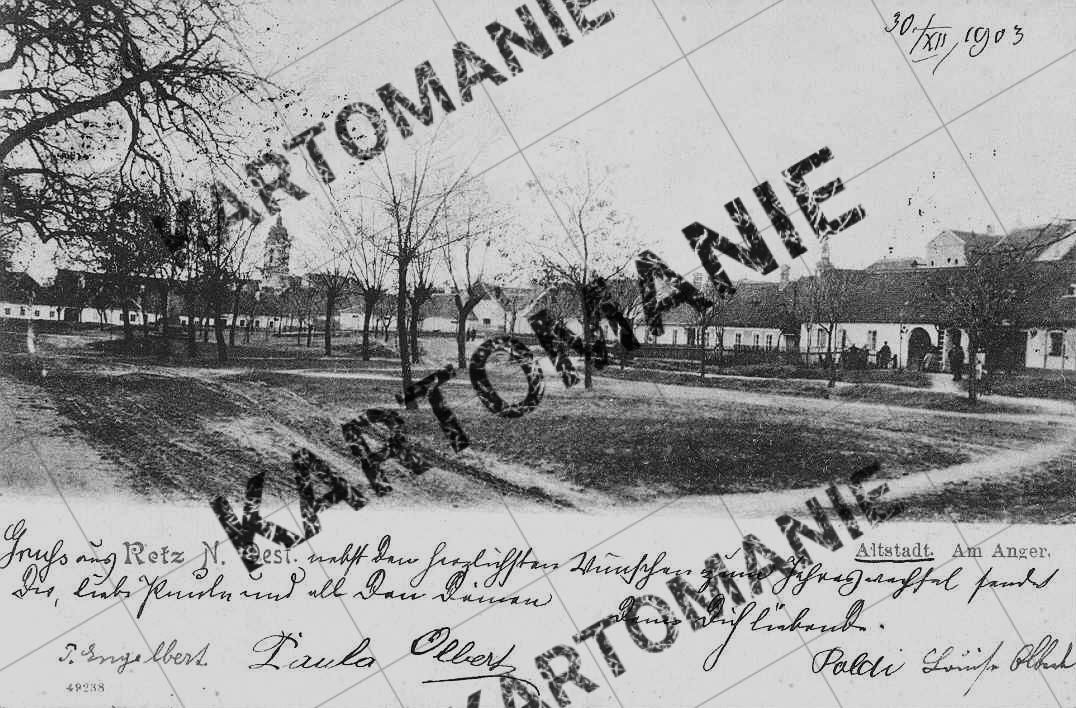 30./XII. 1903
KARTOMANIE
KARTOMANIE
KARTOMANIE
Gruss aus Retz N. Oest. nebst den herzlichsten Wünschen zum Jahreswechsel sendet
Dir, liebe Paula und all den Deinen
Deine Dich liebende.
Altstadt. Am Anger.
T. Engelbert. Paula Olbert Poldi Louise Olbert
49238